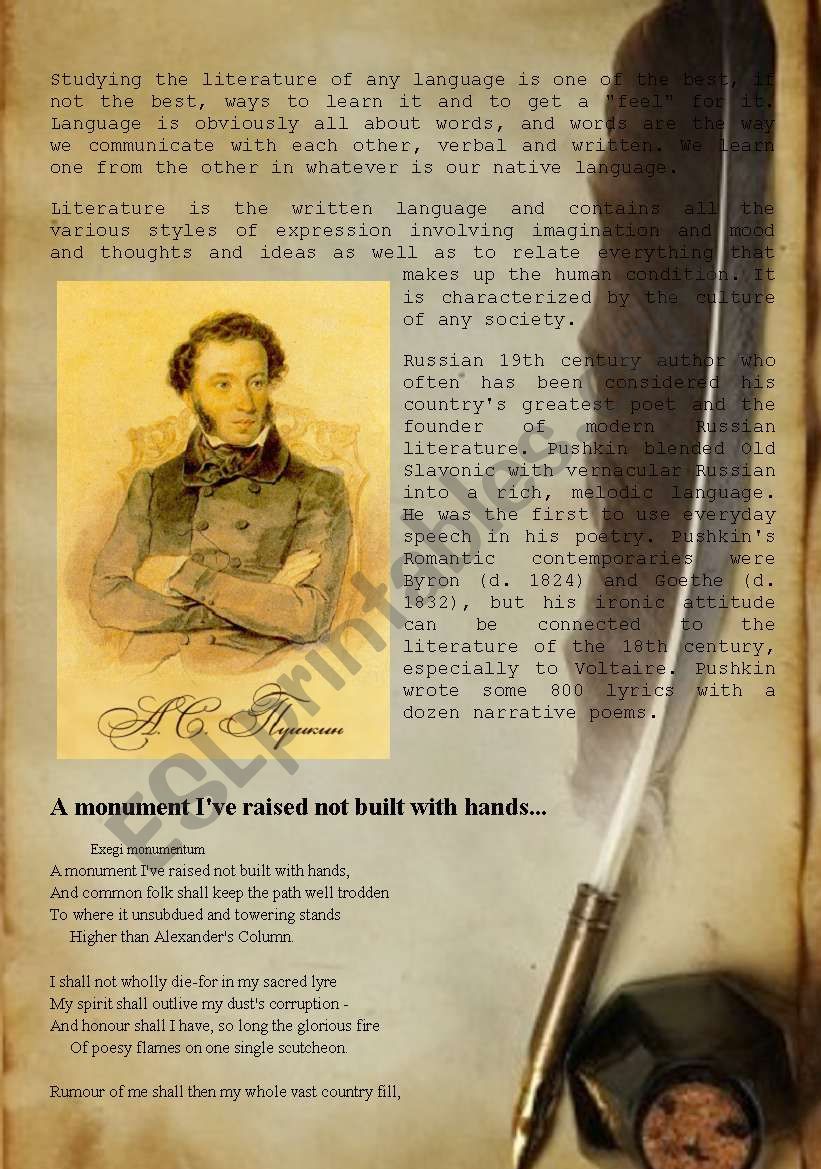 Studying the literature of any language is one of the best, if
not the best, ways to learn it and to get a "feel" for it.
Language is obviously all about words, and words are the way
we communicate with each other, verbal and written. We learn
one from the other in whatever is our native language.
Literature is the written language and contains all the
various styles of expression involving imagination and mood
and thoughts and ideas as well as to relate everything that
makes up the human condition. It
is characterized by the culture
of any society.
Russian 19th century author who
often has been considered his
country's greatest poet and the
founder of modern Russian
literature. Pushkin blended Old
Slavonic with vernacular Russian
into a rich, melodic language.
He was the first to use everyday
speech in his poetry. Pushkin's
Romantic contemporaries were
Byron (d. 1824) and Goethe (d.
1832), but his ironic attitude
can be connected to the
literature of the 18th century,
especially to Voltaire. Pushkin
wrote some 800 lyrics with a
dozen narrative poems.
А.С. Пушкин
A monument I've raised not built with hands...
Exegi monumentum
A monument I've raised not built with hands,
And common folk shall keep the path well trodden
To where it unsubdued and towering stands
Higher than Alexander's Column.
I shall not wholly die-for in my sacred lyre
My spirit shall outlive my dust's corruption -
And honour shall I have, so long the glorious fire
Of poesy flames on one single scutcheon.
Rumour of me shall then my whole vast country fill,
ESLprintables.com